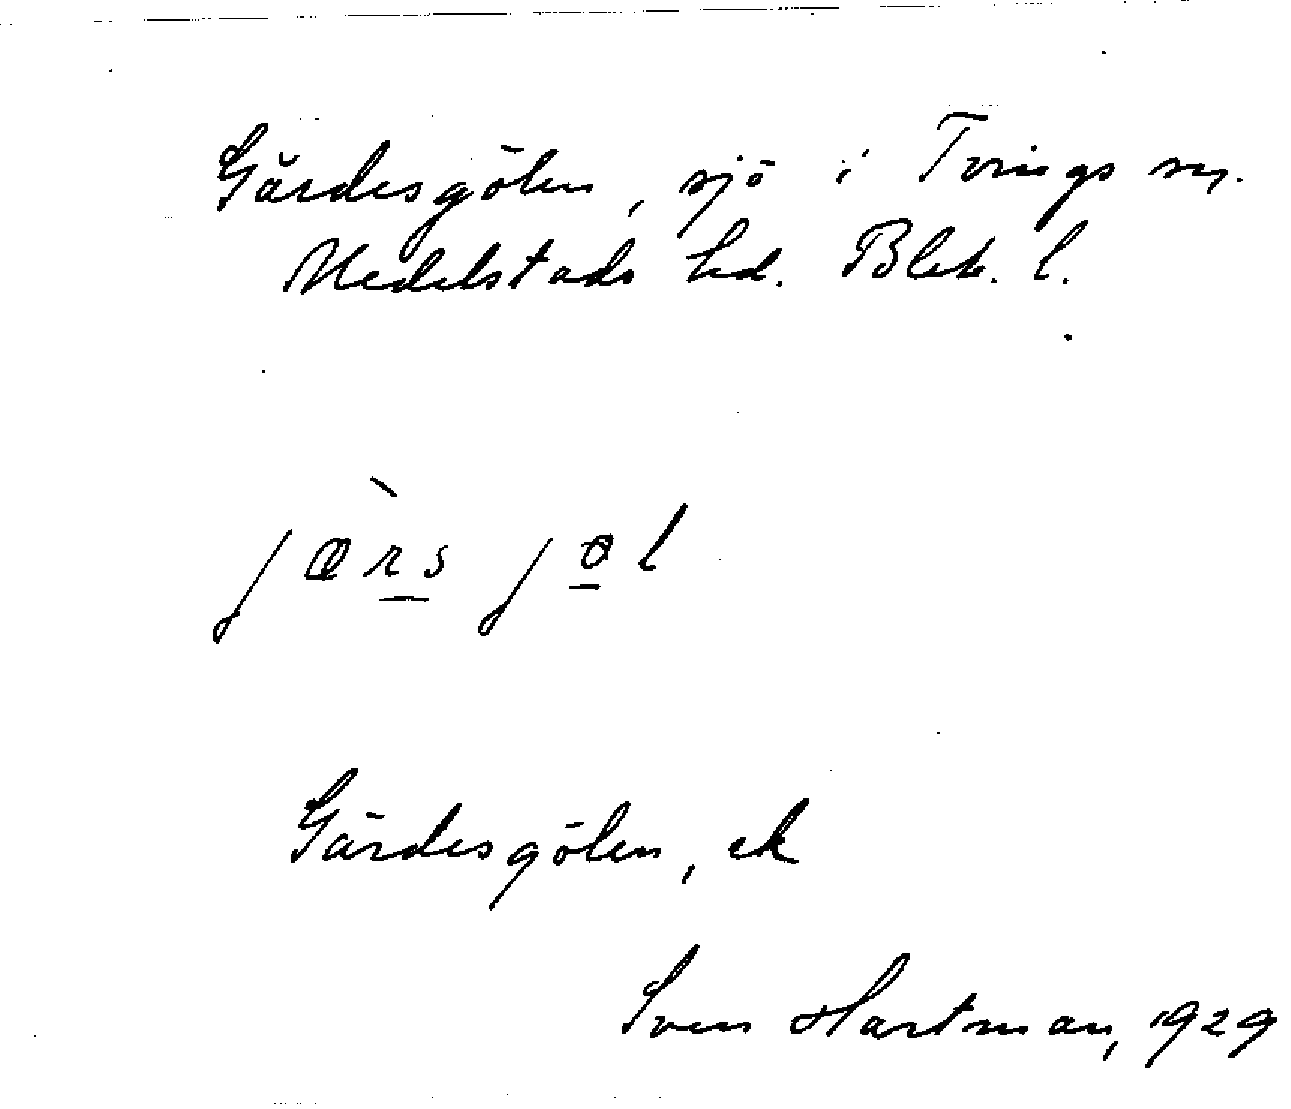 Gärdesgölen, sjö i Tvings sn.
Medelstads hd. Blek. l.
jærs jøl
Gärdesgölen, ek
Sven Hartman, 1929